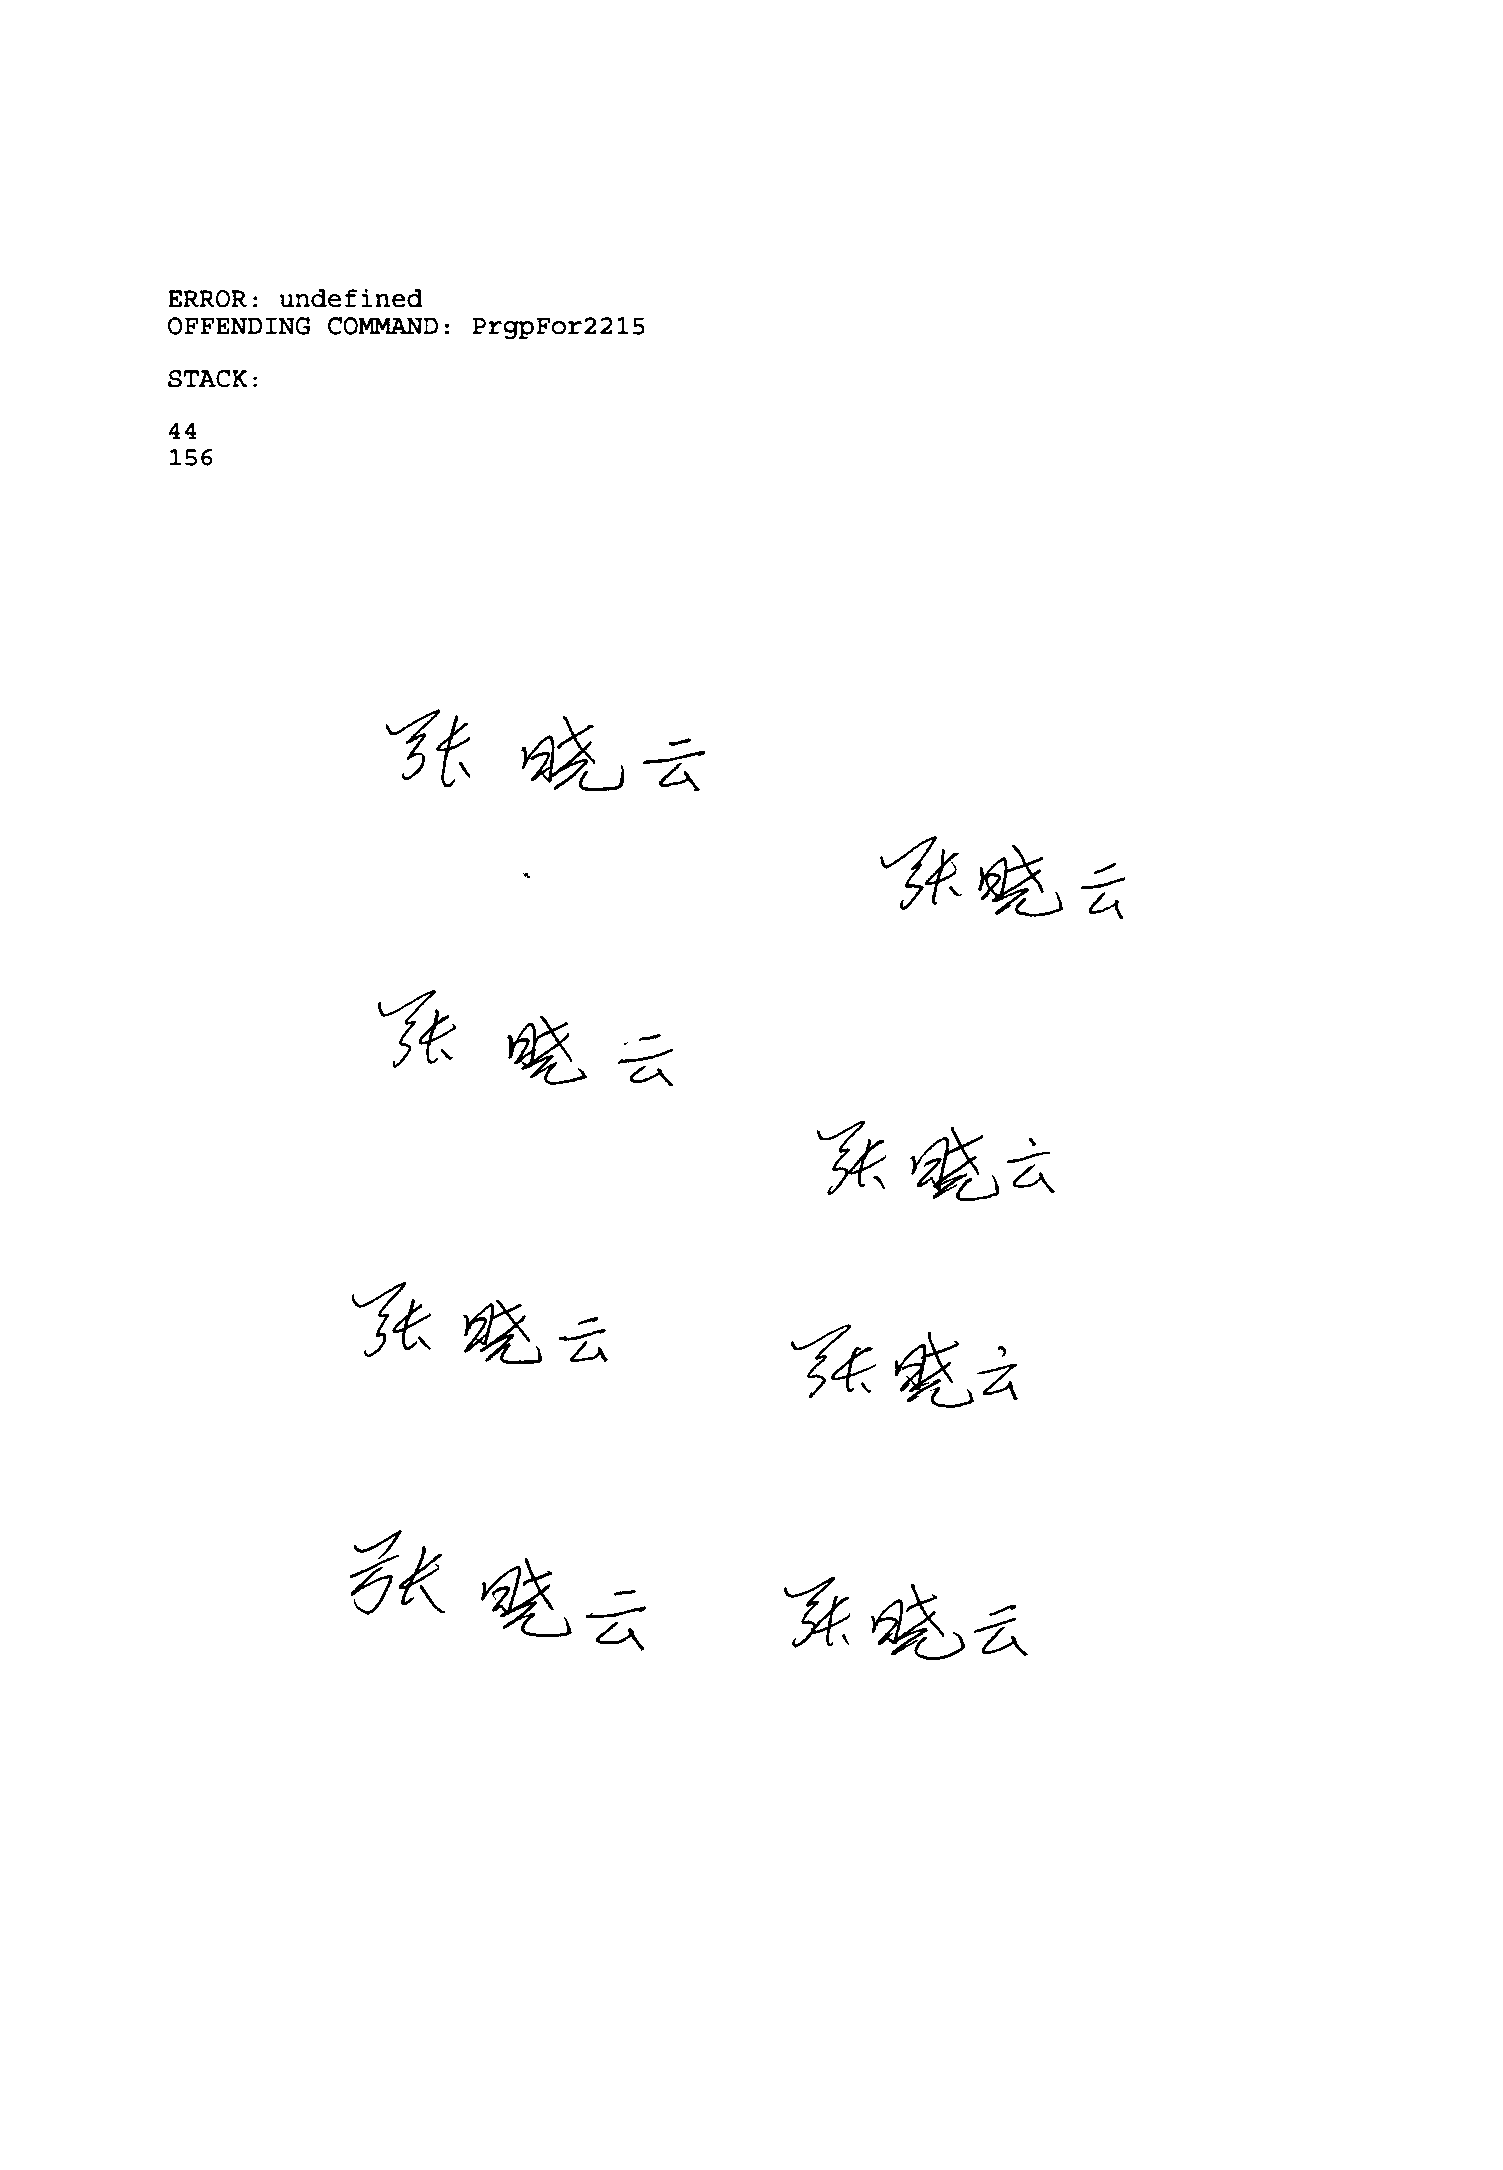 ERROR: undefined
OFFENDING COMMAND: PrgpFor2215
STACK:
44
156
张晓云
张晓云
张晓云
张晓云
张晓云
张晓云
张晓云
张晓云